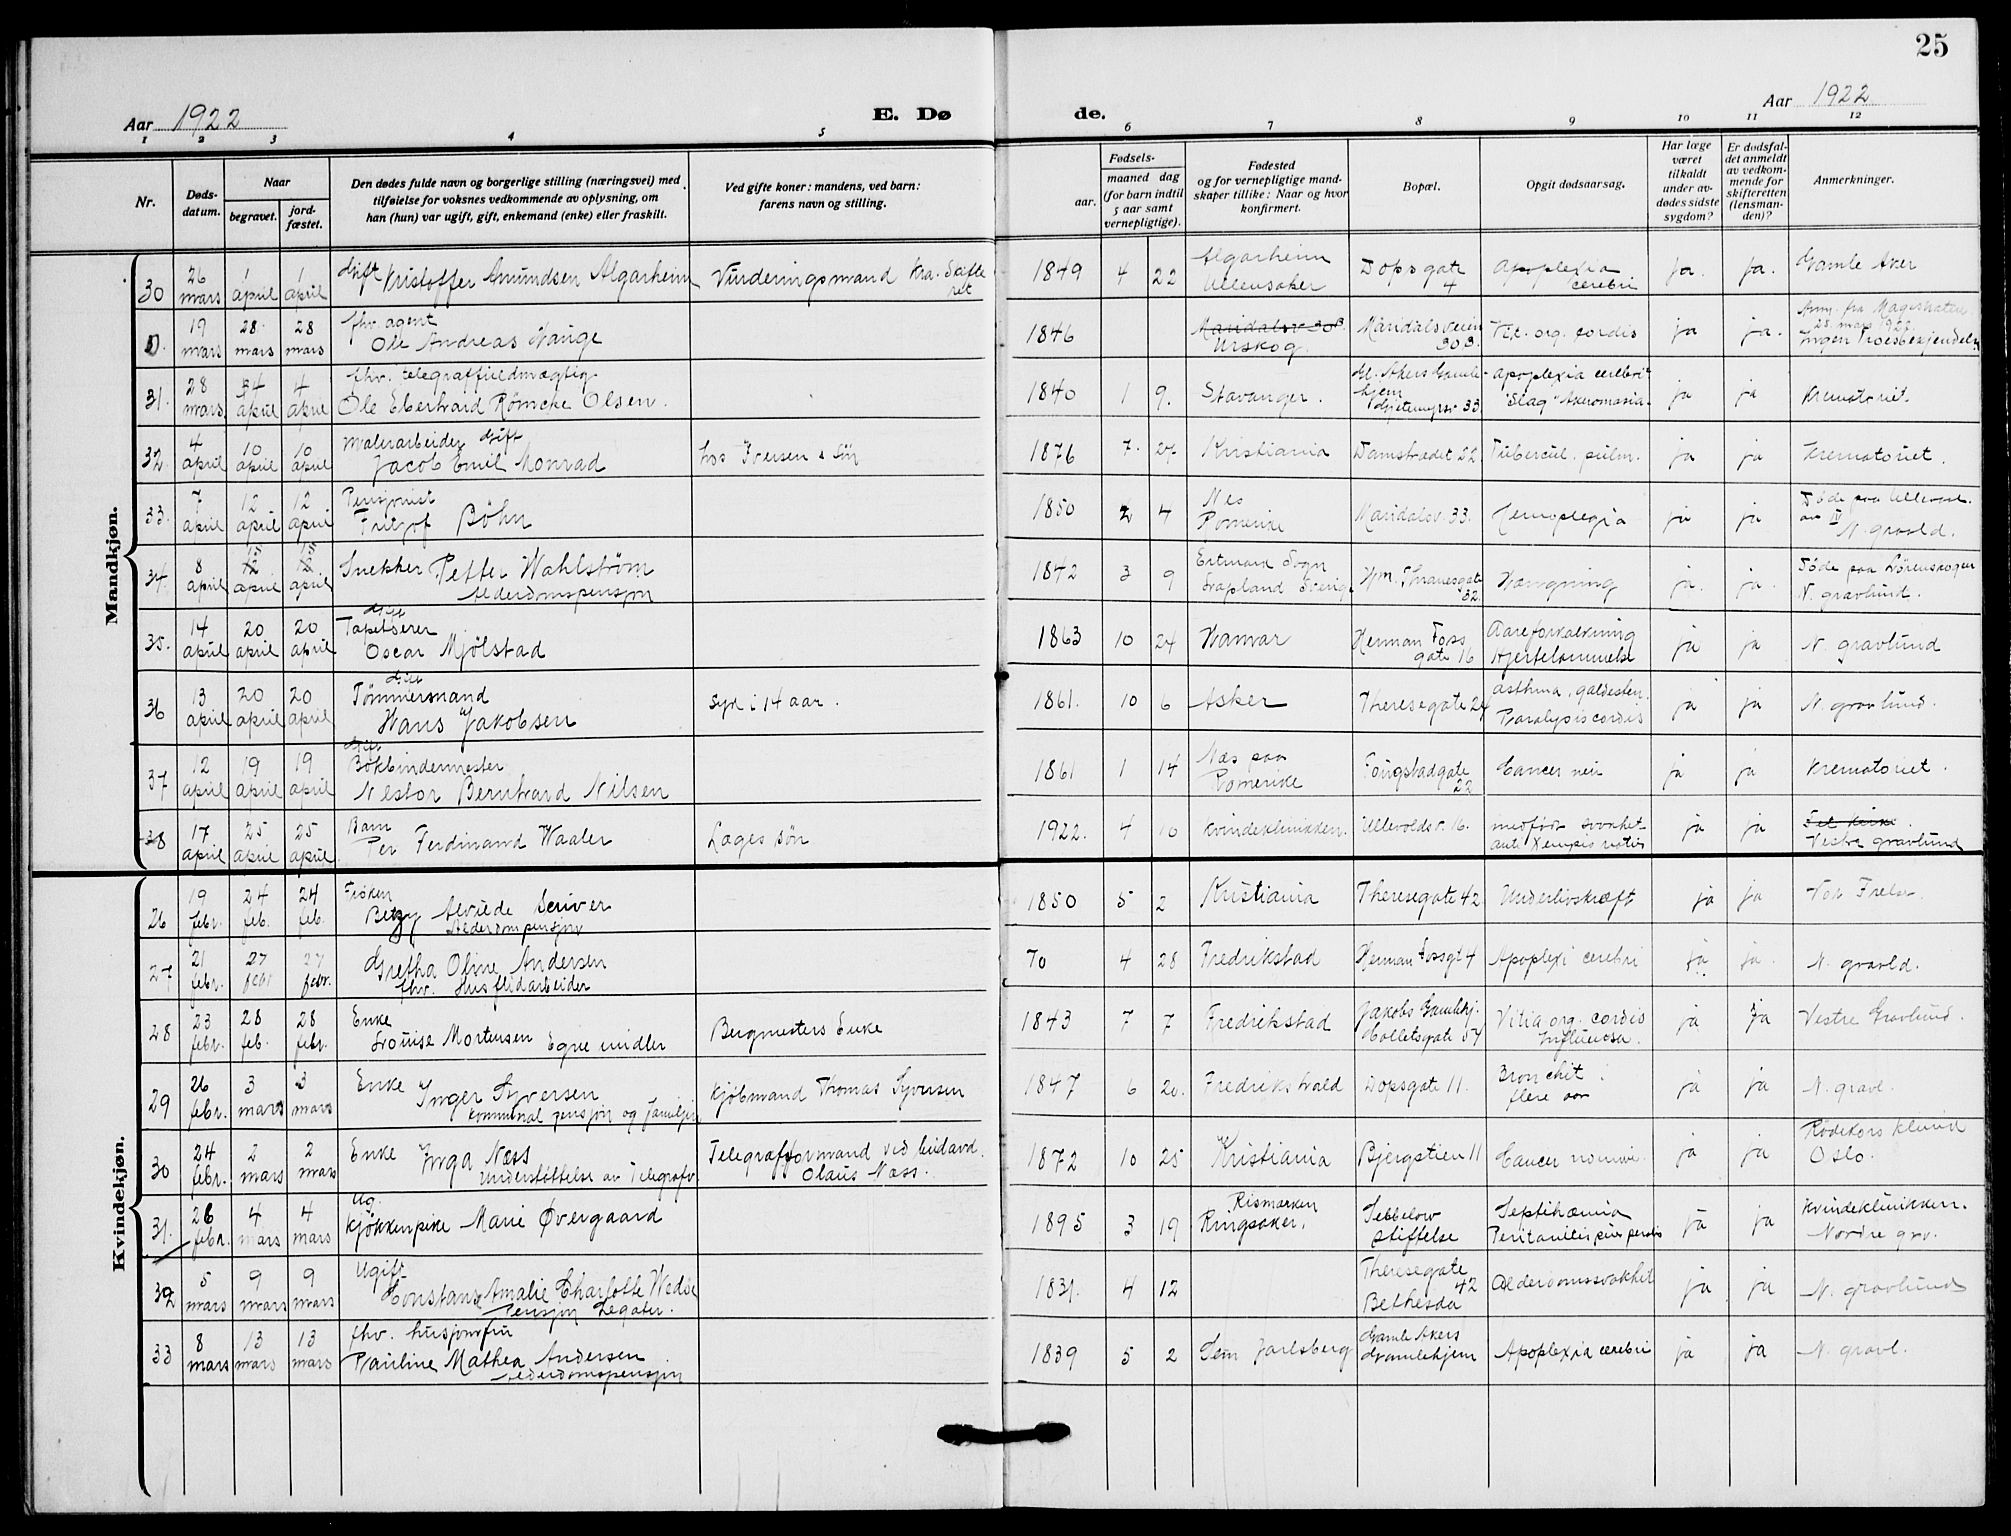 25
Aar 1922
E. Dø
de.
Aar 1922
1 2 3 4 5 6 7 8 9 10 11 12
Nr.
Døds-
datum.
Naar
begravet.
jord-
fæstet.
Den dødes fulde navn og borgerlige stilling (næringsvei) med
tilføielse for voksnes vedkommende av oplysning, om
han (hun) var ugift, gift, enkemand (enke) eller fraskilt.
Ved gifte koner: mandens, ved barn:
farens navn og stilling.
Fødsels-
aar.
maaned dag
(for barn indtil
5 aar samt
vernepligtige).
Fødested
og for vernepligtige mand-
skaper tillike: Naar og hvor
konfirmert.
Bopæl.
Opgit dødsaarsag.
Har læge
været
tilkaldt
under av-
dødes sidste
sygdom?
Er dødsfal-
det anmeldt
av vedkom-
mende for
skifteretten
(lensman-
den)?
Anmerkninger.
Mandkjøn.
30 26 mars 1 april 1 april Gift Kristoffer Amundsen Algarheim Vurderingsmand Kra. Skifte ret 1849 4 22 Algarheim Ullensaker Dopsgate 4 Apoplexia cerebri ja. ja. Gamle Aker
0. 19 mars 28 mars 28 mars fhv. agent Ole Andreas Hauge 1846 Maridalsv 30B. Urskog Maridalsveien 30B. Vit. org. cordis ja ja. Anm. fra Magistraten 25. mars 1922. Ingen Troesbekjendelse
31. 28 mars 4 april 4 april fhv. telegraffuldmægtig Ole Eberhard Römcke Olsen. 1840 1 9. Stavanger. Gl. Akers Gamle- hjem Gjetemyrsv 33. Apoplexia cerebri "Slag" ja ja Krematoriet.
32. 4 april 10 april 10 april Malerarbeider Gift Jacob Emil Monrad hos Iversen & Søn 1876 7. 27 Kristiania Damstrædet 22 Tubercul. pulm. ja ja Krematoriet.
33. 7 april 12 april 12 april Pensjonist Fritjof Böhn 1850 2 4 Nes Romerike Maridalsv. 33. Hemoplegia ja ja Döde paa Ullevaal. av IV N. gravld.
34. 8 april 12 15 april 12 15 april Snekker Petter Wahlström Alderdomspensjon 1842 3 9 Ertmark Sogn Lapland Sverige Hm. Thranesgate 32. Hængning ja. ja Döde paa Lörenskogen N. gravlund.
35. 14 april 20 april 20 april Gift Tapetserer Oscar Mjölstad 1863 10 24 Hamar Herman Foss gate 16 Aareforkalkning Hjertelammelse ja ja N. gravlund
36 13 april 20 april 20 april Gift Tømmermand Hans Jakobsen Syk i 14 aar. 1861. 10 6 Asker Theresegate 24 Asthma, galdesten. Paralysis cordis ja ja N. gravlund.
37 12 april 19 april 19 april Gift Bokbindermester Nestor Bernhard Nilsen 1861 1 14 Næs paa Romerike Fougstadgate 22 Cancer ja ja Krematoriet.
38 17 april 25 april 25 april Barn Per Ferdinand Waaler Læges søn 1922. 4 10 Kvindeklinikken. Ullevoldsv. 16. medfödt svakhet ja ja Vestre gravlund
Kvindekjøn.
26 19 febr. 24 feb. 24 feb. Frøken Betzy Alvilde Scriver Alderdomspensjon 1850 5 2 Kristiania Theresegate 42 Underlivskræft ja ja Vor Frelser
27 21 febr. 27 febr 27 febr. Gretha Oline Andersen fhv. Husflidarbeider 70 4 28 Fredrikstad Herman Fossgt 4 Apoplexi cerebri ja ja. N. gravld.
28 23 febr. 28 feb. 28 febr. Enke Louise Mortensen Egne midler Bergmesters Enke 1843 7 7 Fredrikstad Jakobs Gamlehj. Colletsgate 54 Vitia org. cordis Influensa. ja ja Vestre Gravlund.
29 26 febr. 3 mars 3 mars Enke Inger Syversen Kommunal pensjon og familjen Kjöbmand Thomas Syversen 1847 6 20. Fredrikshald Dopsgate 11. Bronchit flere aar ja ja N. gravl.
30 24 febr. 2 mars 2 mars Enke Inga Næss Understøttelse av Telegrafv. Telegrafformand ved Olaus Næss. 1872 10 25 Kristiania Bjergstien 11 Cancer ja ja Rödekors klinik Oslo.
31. 26 febr. 4 mars 4 mars Ug. Kjøkkenpike Marie Øvergaard 1895 3 19 Rismarken Ringsaker. Sebbelow stiftelse Septihæmia ja ja Kvindeklinikken. Nordre grv.
32 5 mars 9 mars 9 mars Ugift Constanse Amalie Charlotte Wedse Pensjon Legater. 1831. 4 12 Theresegate 42 Bethesda Alderdomssvakhet ja ja N. gravlund
33 8 mars 13 mars 13 mars fhv. husjomfru Pauline Mathea Andersen Alderdomspensjon 1839 5 2 Sem Jarlsberg Gamle Akers Gamlehjem Apoplexia cerebri ja ja N. gravl.